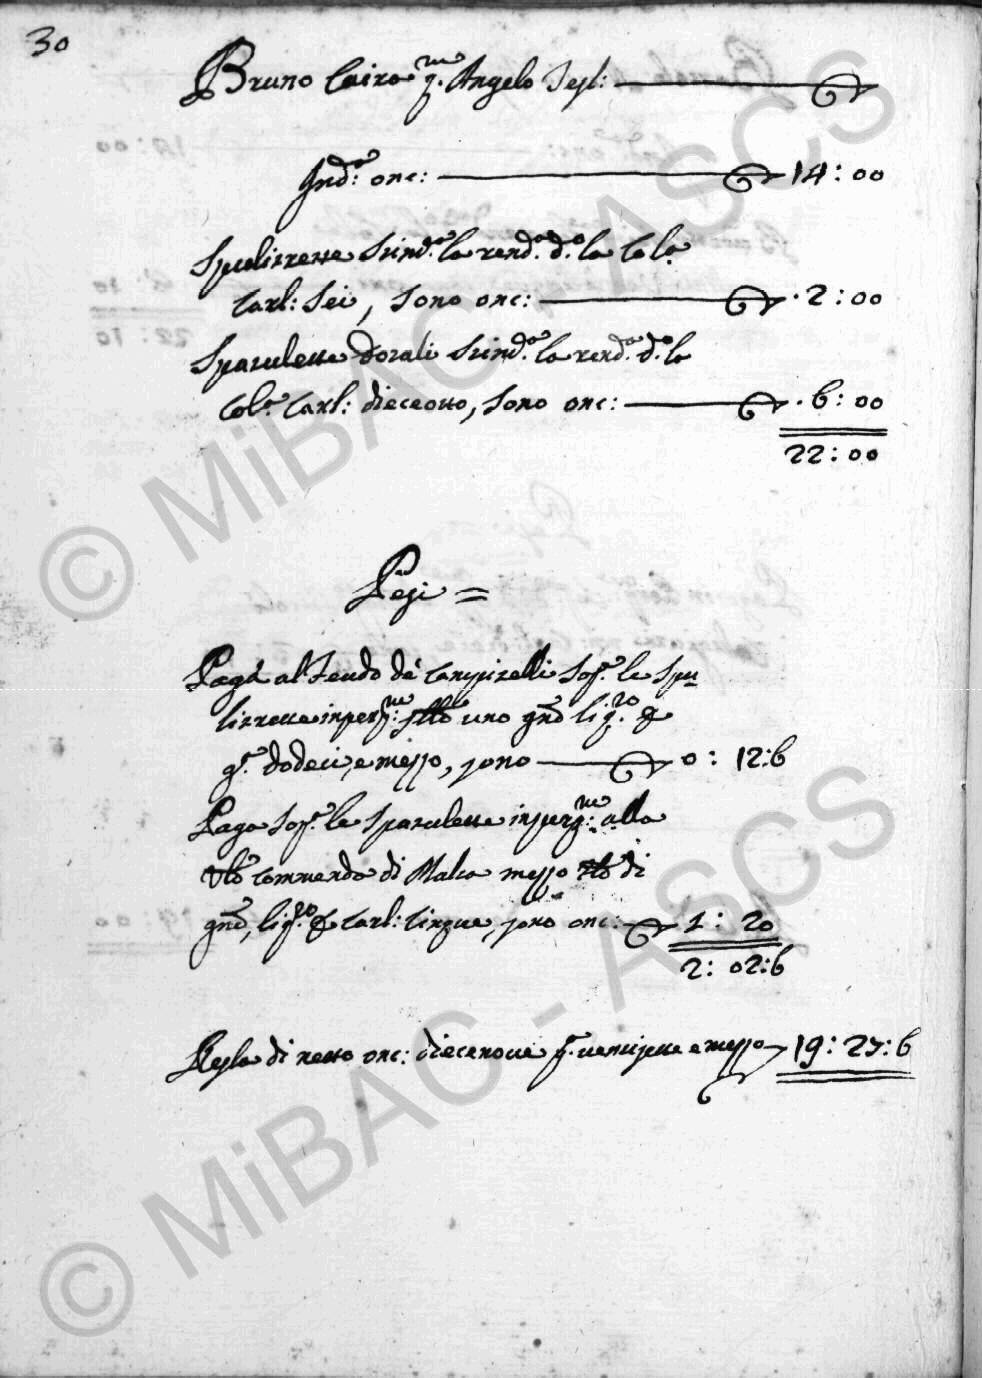 30
Bruno Cairo q.m Angelo Test:
Ind.a: onc: 14: 00
Spulizzette Scind.o la rend.a d.o la Col.a
Carl: Sei, sono onc: . 2: 00
Sparulette Dorali Scind.o la rend.a d.o la
Col.a Carl: dieceotto, sono onc: . 6: 00
22: 00
Pesi =
Paga al Feudo de' Campitelli Sop.a le Spu
lizzette in perp.m: uno gnd. liq.ro &
g.a dodeci, e mezzo, sono 0: 12:6
Paga Sop.a le Sparulette in perp.m: alla
Commenda di Malta mezzo di
gnd. liq.ro & Carl: Cinque, sono onc: 1: 20
2: 02:6
Resta di netto onc: diecenove g. ventisette e mezzo 19: 27: 6
© MiBAC - ASCS
© MiBAC - ASCS